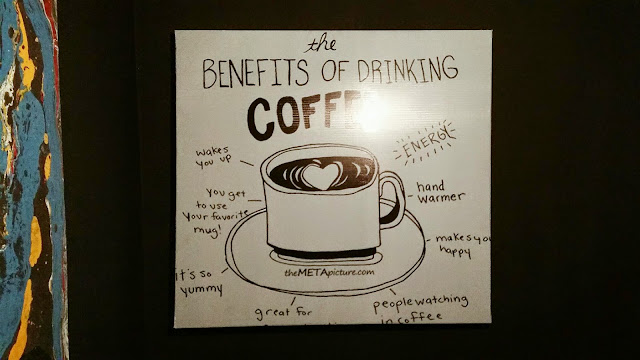 the
BENEFITS OF DRINKING
COFFEE
ENERGY
wakes
you up
you get
to use
your favorite
mug!
hand
warmer
makes you
happy
it's so
yummy
theMETApicture.com
great for
people watching
in coffee